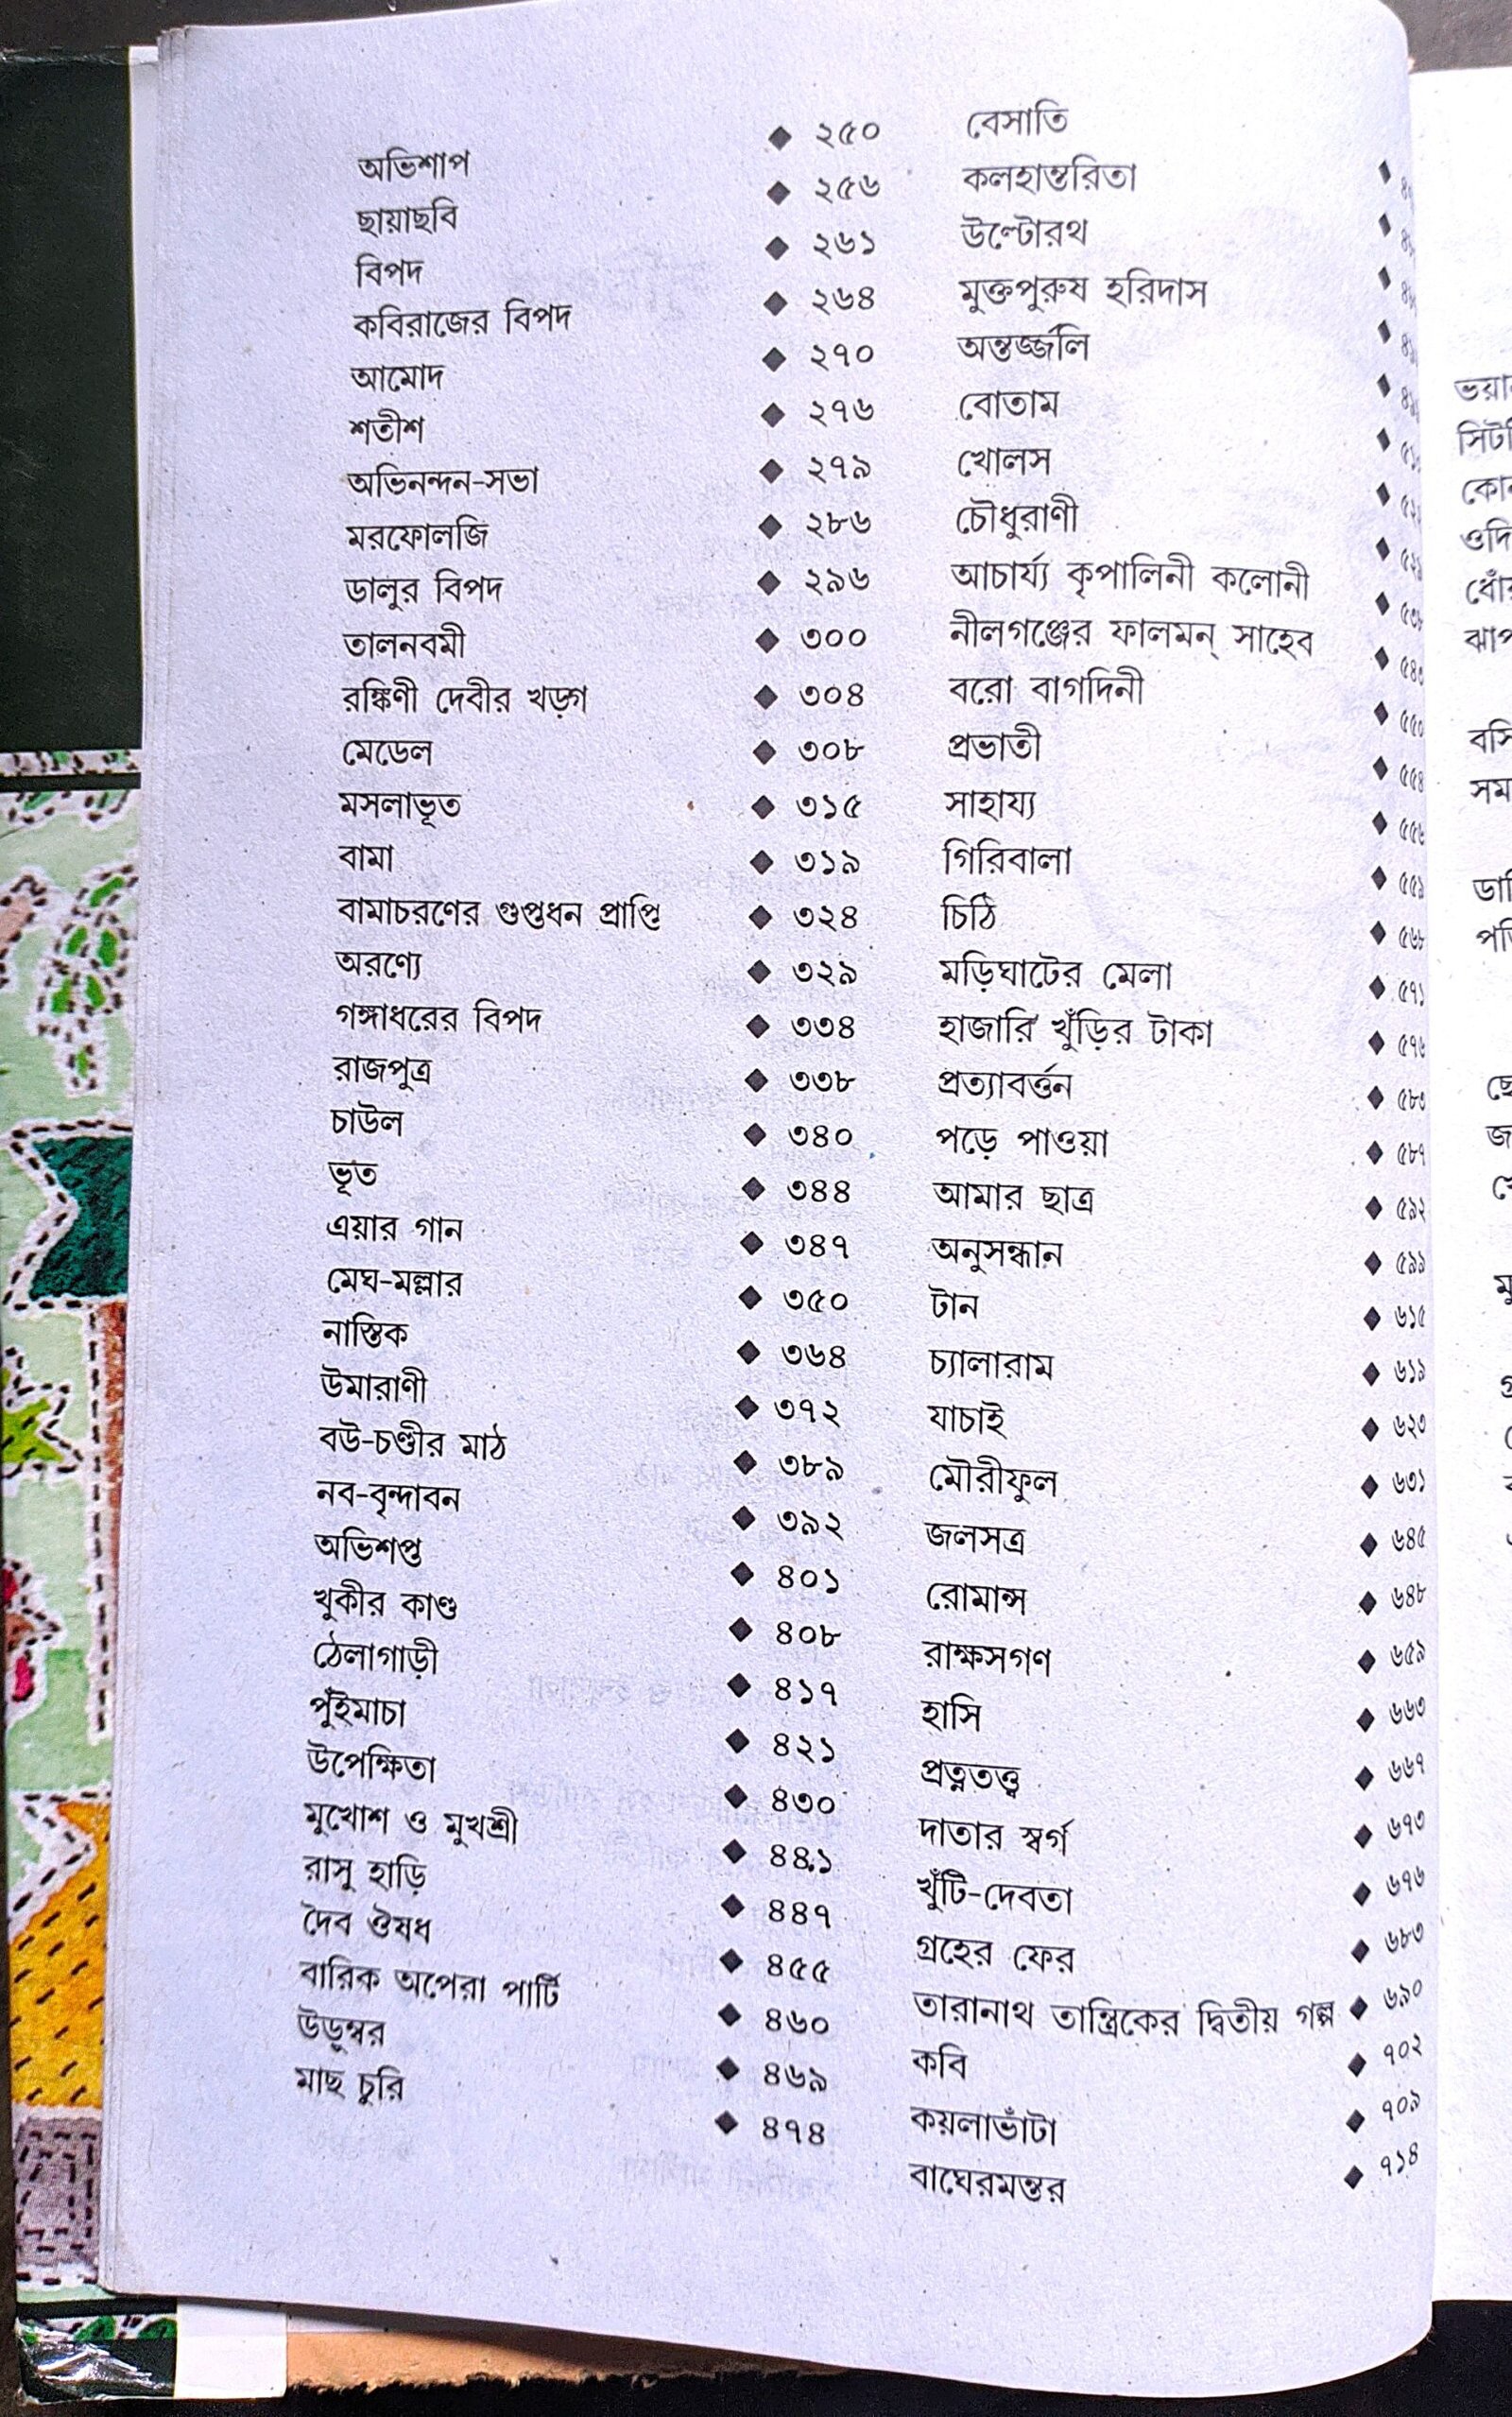 অভিশাপ ◆ ২৫০
ছায়াছবি ◆ ২৫৬
বিপদ ◆ ২৬১
কবিরাজের বিপদ ◆ ২৬৪
আমোদ ◆ ২৭০
শতীশ ◆ ২৭৬
অভিনন্দন-সভা ◆ ২৭৯
মরফোলজি ◆ ২৮৬
ডালুর বিপদ ◆ ২৯৬
তালনবমী ◆ ৩০০
রঙ্কিণী দেবীর খড়্গ ◆ ৩০৪
মেডেল ◆ ৩০৮
মসলাভূত ◆ ৩১৫
বামা ◆ ৩১৯
বামাচরণের গুপ্তধন প্রাপ্তি ◆ ৩২৪
অরণ্যে ◆ ৩২৯
গঙ্গাধরের বিপদ ◆ ৩৩৪
রাজপুত্র ◆ ৩৩৮
চাউল ◆ ৩৪০
ভূত ◆ ৩৪৪
এয়ার গান ◆ ৩৪৭
মেঘ-মল্লার ◆ ৩৫০
নাস্তিক ◆ ৩৬৪
উমারাণী ◆ ৩৭২
বউ-চণ্ডীর মাঠ ◆ ৩৮৯
নব-বৃন্দাবন ◆ ৩৯২
অভিশপ্ত ◆ ৪০১
খুকীর কাণ্ড ◆ ৪০৮
ঠেলাগাড়ী ◆ ৪১৭
পুঁইমাচা ◆ ৪২১
উপেক্ষিতা ◆ ৪৩০
মুখোশ ও মুখশ্রী ◆ ৪৪১
রাসু হাড়ি ◆ ৪৪৭
দৈব ঔষধ ◆ ৪৫৫
বারিক অপেরা পার্টি ◆ ৪৬০
উড়ুম্বর ◆ ৪৬৯
মাছ চুরি ◆ ৪৭৪
বেসাতি ◆
কলহান্তরিতা ◆
উল্টোরথ ◆
মুক্তপুরুষ হরিদাস ◆
অন্তর্জ্জলি ◆
বোতাম ◆
খোলস ◆
চৌধুরাণী ◆
আচার্য্য কৃপালিনী কলোনী ◆ ৫৩৮
নীলগঞ্জের ফালমন্ সাহেব ◆ ৫৪৩
বরো বাগদিনী ◆ ৫৫০
প্রভাতী ◆ ৫৫৪
সাহায্য ◆ ৫৫৬
গিরিবালা ◆ ৫৫৯
চিঠি ◆ ৫৬৮
মড়িঘাটের মেলা ◆ ৫৭১
হাজারি খুঁড়ির টাকা ◆ ৫৭৬
প্রত্যাবর্ত্তন ◆ ৫৮৩
পড়ে পাওয়া ◆ ৫৮৭
আমার ছাত্র ◆ ৫৯২
অনুসন্ধান ◆ ৫৯৯
টান ◆ ৬১৫
চ্যালারাম ◆ ৬১৯
যাচাই ◆ ৬২৩
মৌরীফুল ◆ ৬৩১
জলসত্র ◆ ৬৪৫
রোমান্স ◆ ৬৪৮
রাক্ষসগণ ◆ ৬৫৯
হাসি ◆ ৬৬৩
প্রত্নতত্ত্ব ◆ ৬৬৭
দাতার স্বর্গ ◆ ৬৭৩
খুঁটি-দেবতা ◆ ৬৭৬
গ্রহের ফের ◆ ৬৮৩
তারানাথ তান্ত্রিকের দ্বিতীয় গল্প ◆ ৬৯০
কবি ◆ ৭০২
কয়লাভাঁটা ◆ ৭০৯
বাঘেরমন্তর ◆ ৭১৪